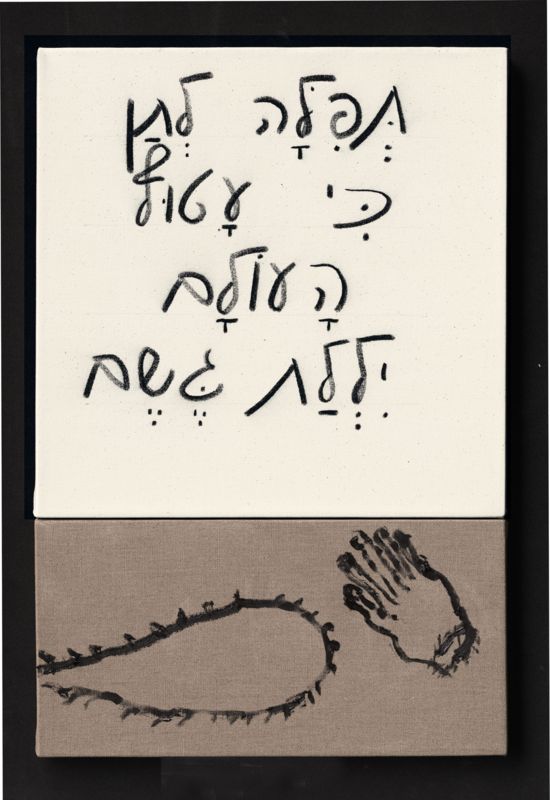 תְּפִלָּה לְתַן
כִּי עָטוּף
הָעוֹלָם
יִלְלַת גֶּשֶׁם